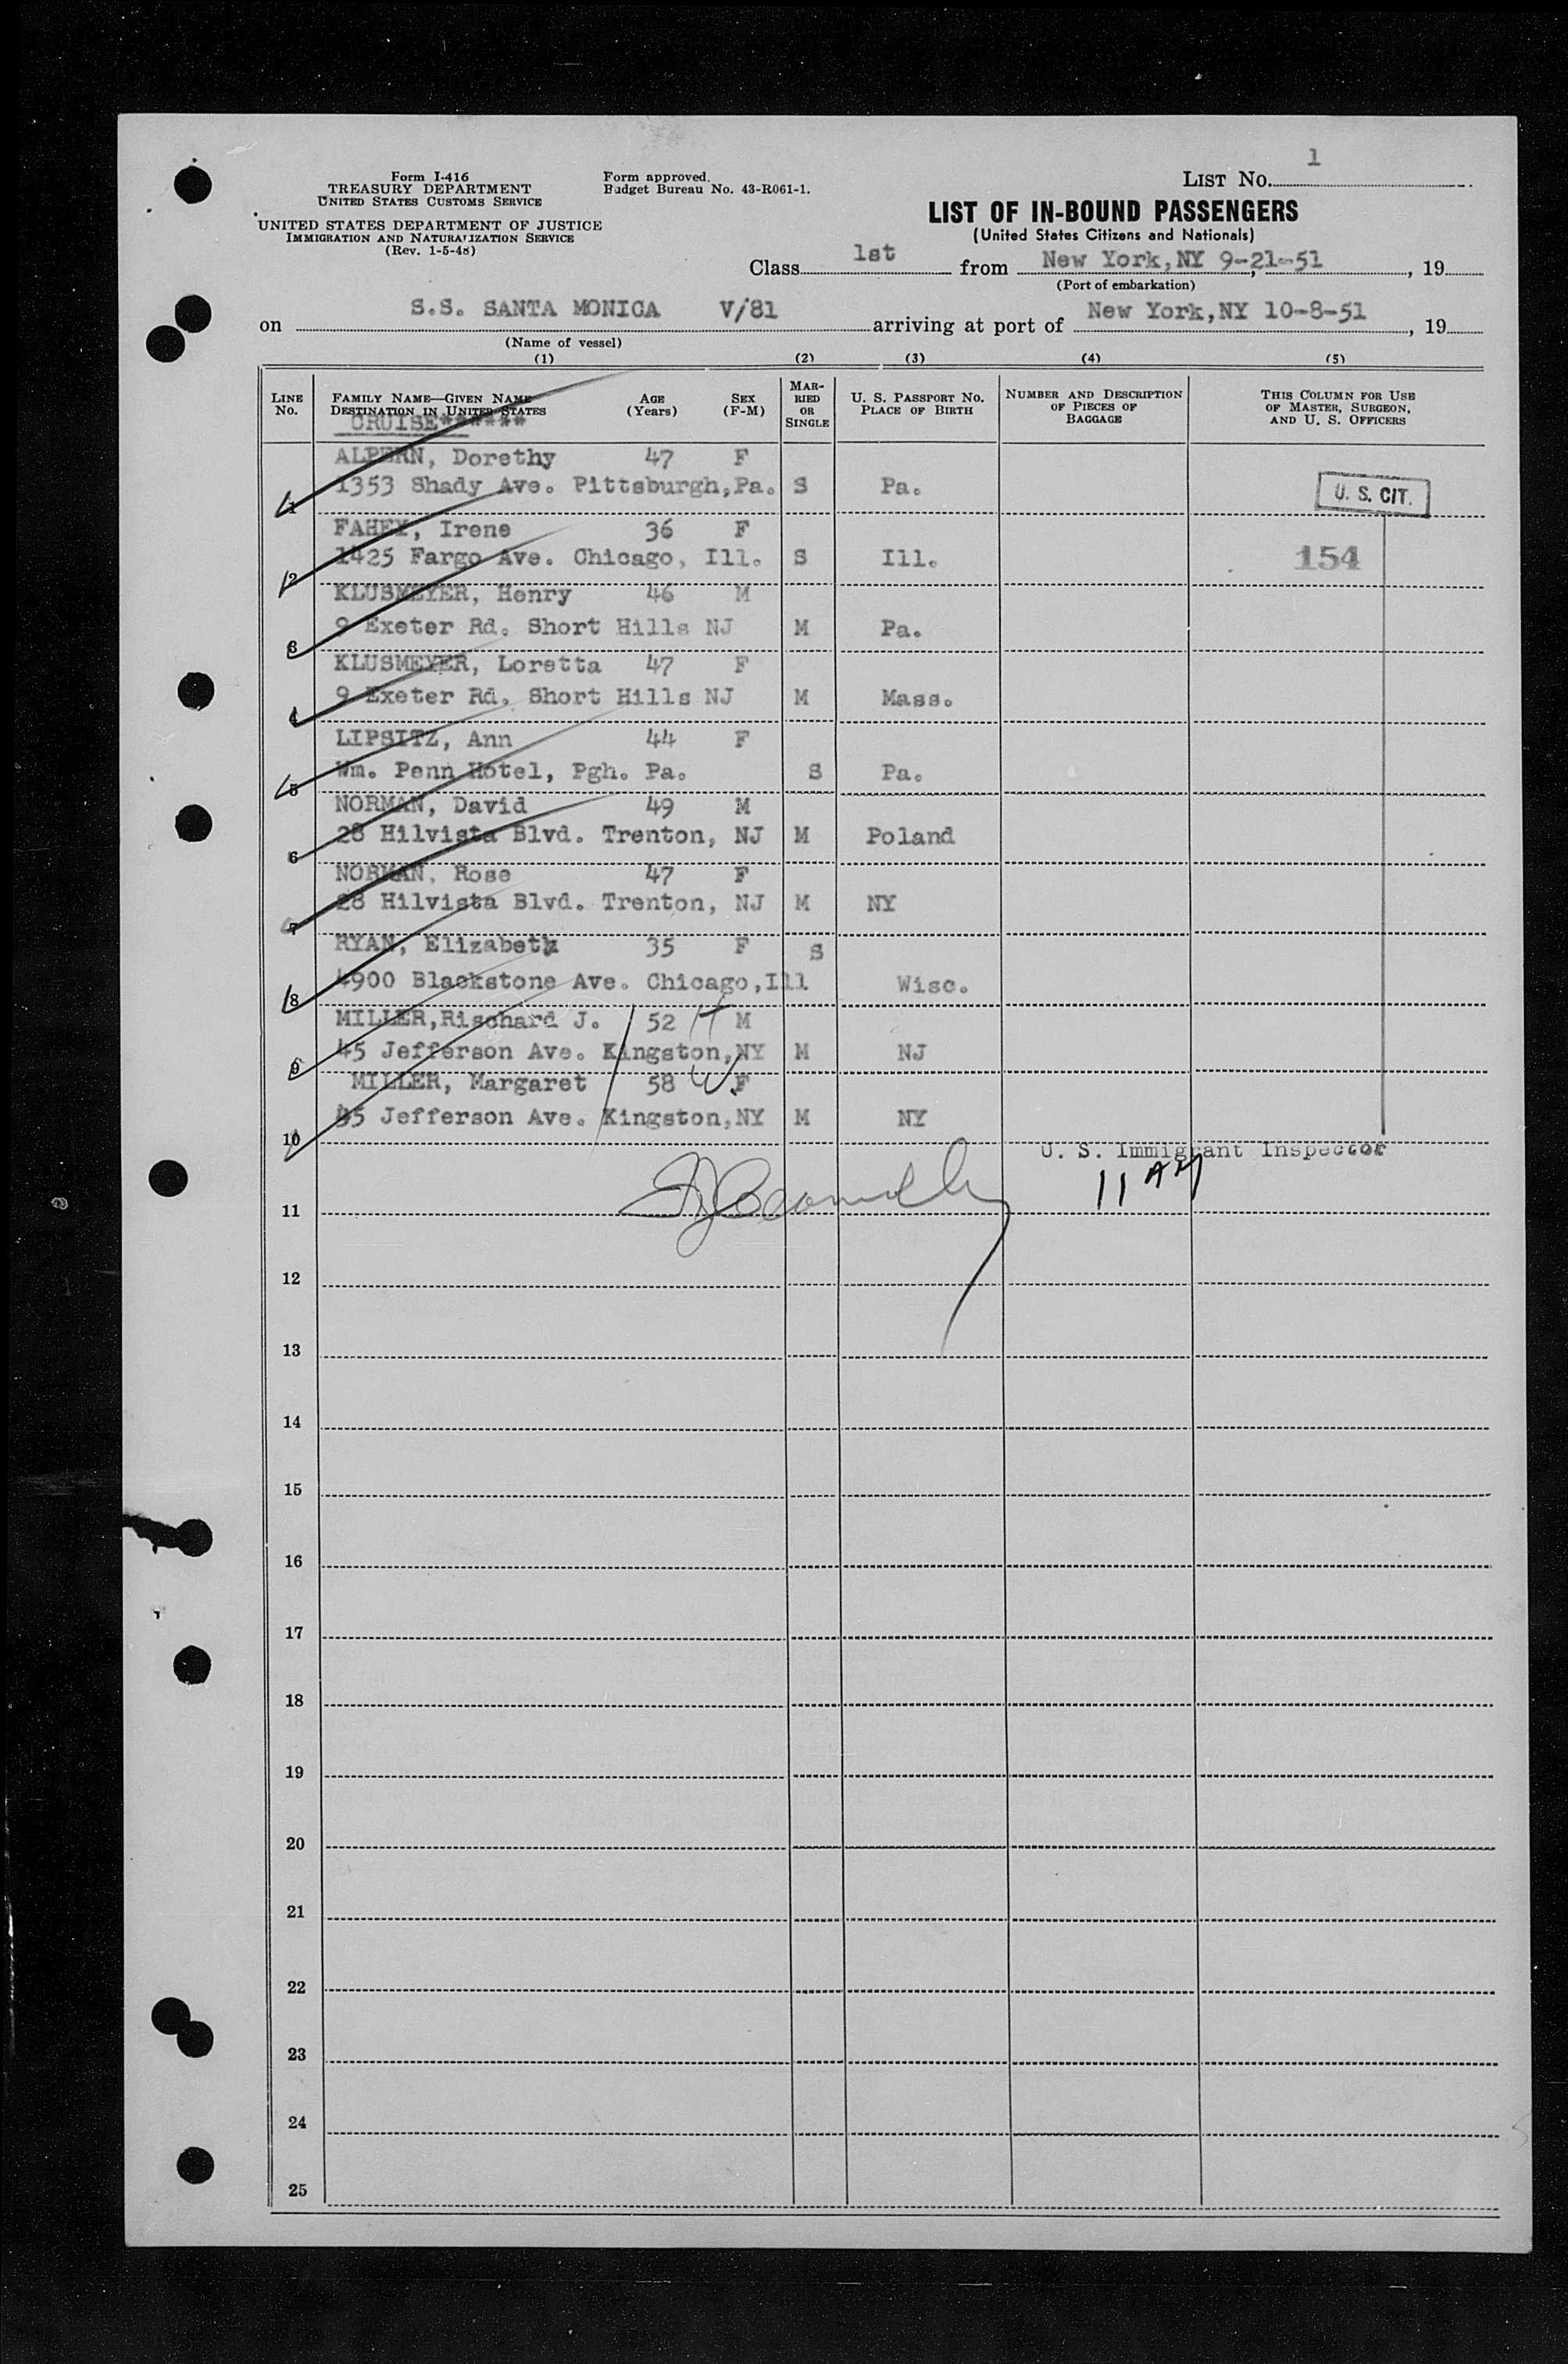 1
Form I-416
TREASURY DEPARTMENT
UNITED STATES CUSTOMS SERVICE
UNITED STATES DEPARTMENT OF JUSTICE
IMMIGRATION AND NATURALIZATION SERVICE
(Rev. 1-5-48)
Form approved.
Budget Bureau No. 43-R061-1.
LIST No.
LIST OF IN-BOUND PASSENGERS
(United States Citizens and Nationals)
Class 1st from New York,NY 9-21-51, 19
(Port of embarkation)
on S.S. SANTA MONICA V/81 arriving at port of New York,NY 10-8-51, 19
(Name of vessel)
(1) (2) (3) (4) (5)
LINE No. FAMILY NAME—GIVEN NAME DESTINATION IN UNITED STATES AGE (Years) SEX (F-M) MARRIED OR SINGLE U. S. PASSPORT NO. PLACE OF BIRTH NUMBER AND DESCRIPTION OF PIECES OF BAGGAGE THIS COLUMN FOR USE OF MASTER, SURGEON, AND U. S. OFFICERS
CRUISE******
ALPERN, Dorethy 47 F
1 1353 Shady Ave. Pittsburgh,Pa. S Pa. U. S. CIT.
FAHEY, Irene 36 F
2 1425 Fargo Ave. Chicago, Ill. S Ill. 154
KLUSMEYER, Henry 46 M
3 9 Exeter Rd. Short Hills NJ M Pa.
KLUSMEYER, Loretta 47 F
4 9 Exeter Rd. Short Hills NJ M Mass.
LIPSITZ, Ann 44 F
5 Wm. Penn Hotel, Pgh. Pa. S Pa.
NORMAN, David 49 M
6 28 Hilvista Blvd. Trenton, NJ M Poland
NORMAN, Rose 47 F
7 28 Hilvista Blvd. Trenton, NJ M NY
RYAN, Elizabeth 35 F S
8 4900 Blackstone Ave. Chicago,Ill Wisc.
MILLER,Rischard J. 52 H M
9 45 Jefferson Ave. Kingston,NY M NJ
MILLER, Margaret 58 W F
10 45 Jefferson Ave. Kingston,NY M NY
U. S. Immigrant Inspector
11 AM
11
12
13
14
15
16
17
18
19
20
21
22
23
24
25